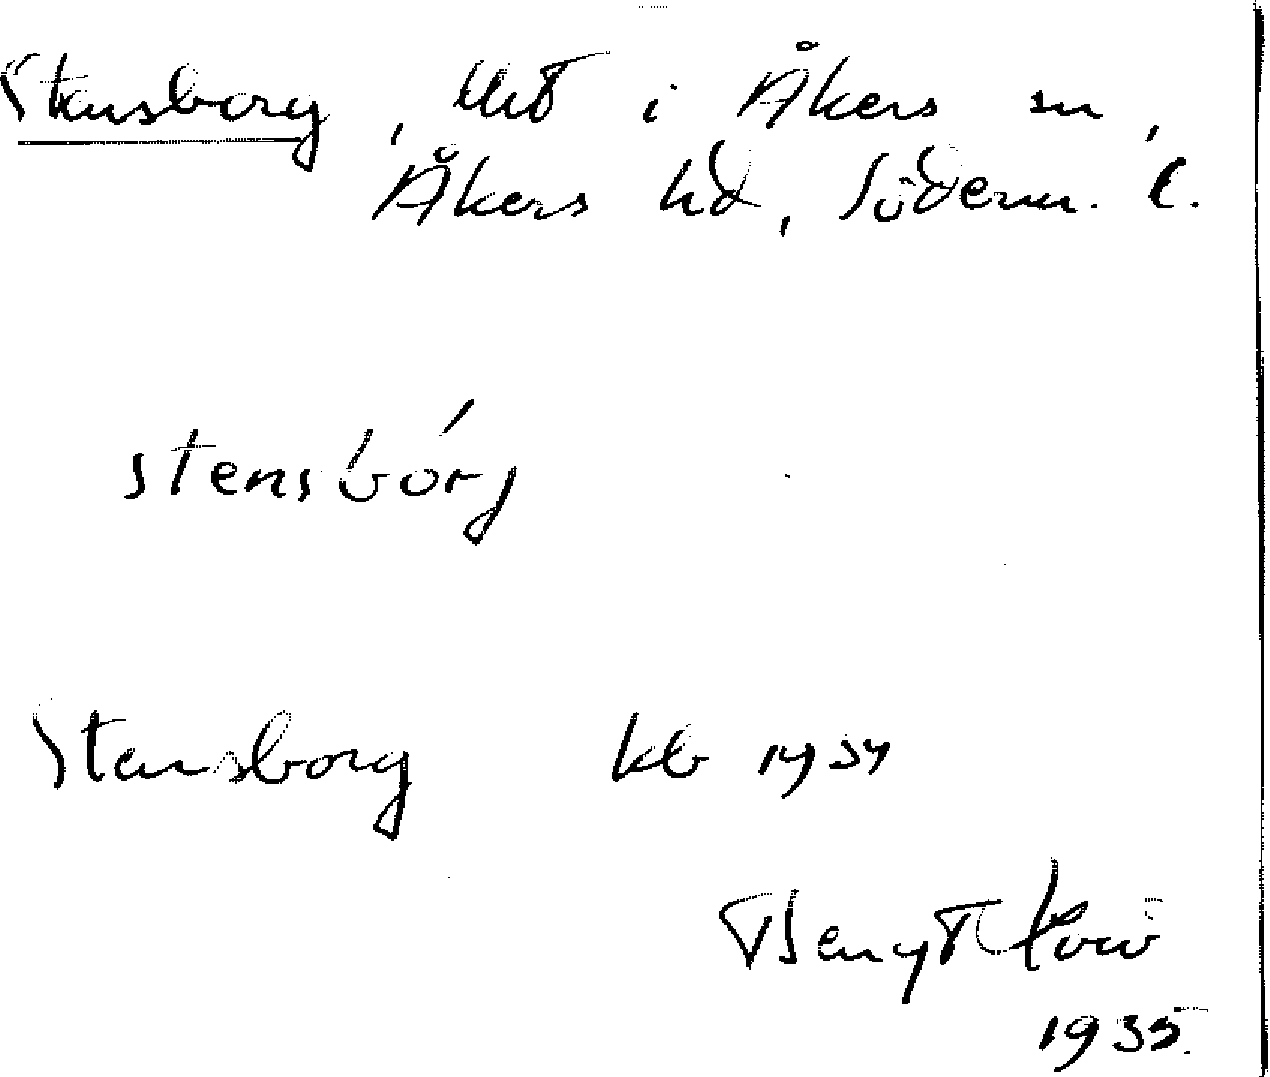 Stensborg, lht i Åkers sn,
Åkers hd, Söderm. l.
stensbórj
Stensborg kb 1934
Bengt
1935.